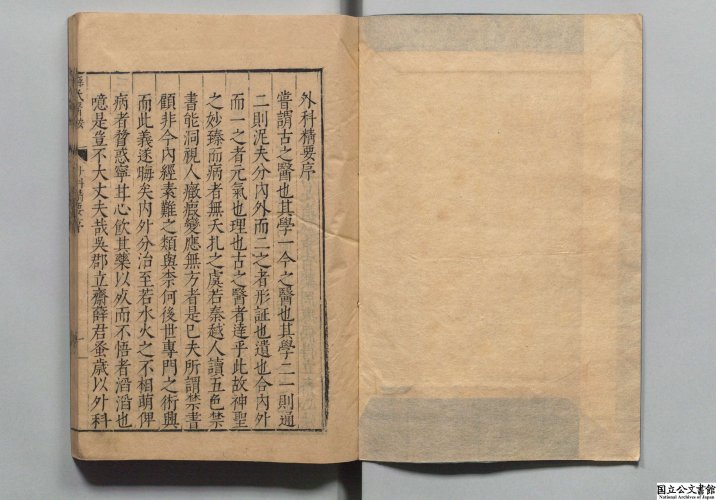 外科精要序
嘗謂古之醫也其學一今之醫也其學二一則通
二則泥夫分內外而二之者形証也遺也合內外
而一之者元氣也理也古之醫者達乎此故神聖
之妙臻而病者無夭扎之虞若秦越人讀五色禁
書能洞視人癥瘕變應無方者是已夫所謂禁書
顧非今內經素難之類與柰何後世專門之術興
而此義遂晦矣內外分治至若水火之不相萌俾
病者瞀惑寧甘心飲其藥以㱙而不悟者滔滔也
噫是豈不大丈夫哉吳郡立齋薛君蚤歲以外科
精要序
一
国立公文書館
National Archives of Japan